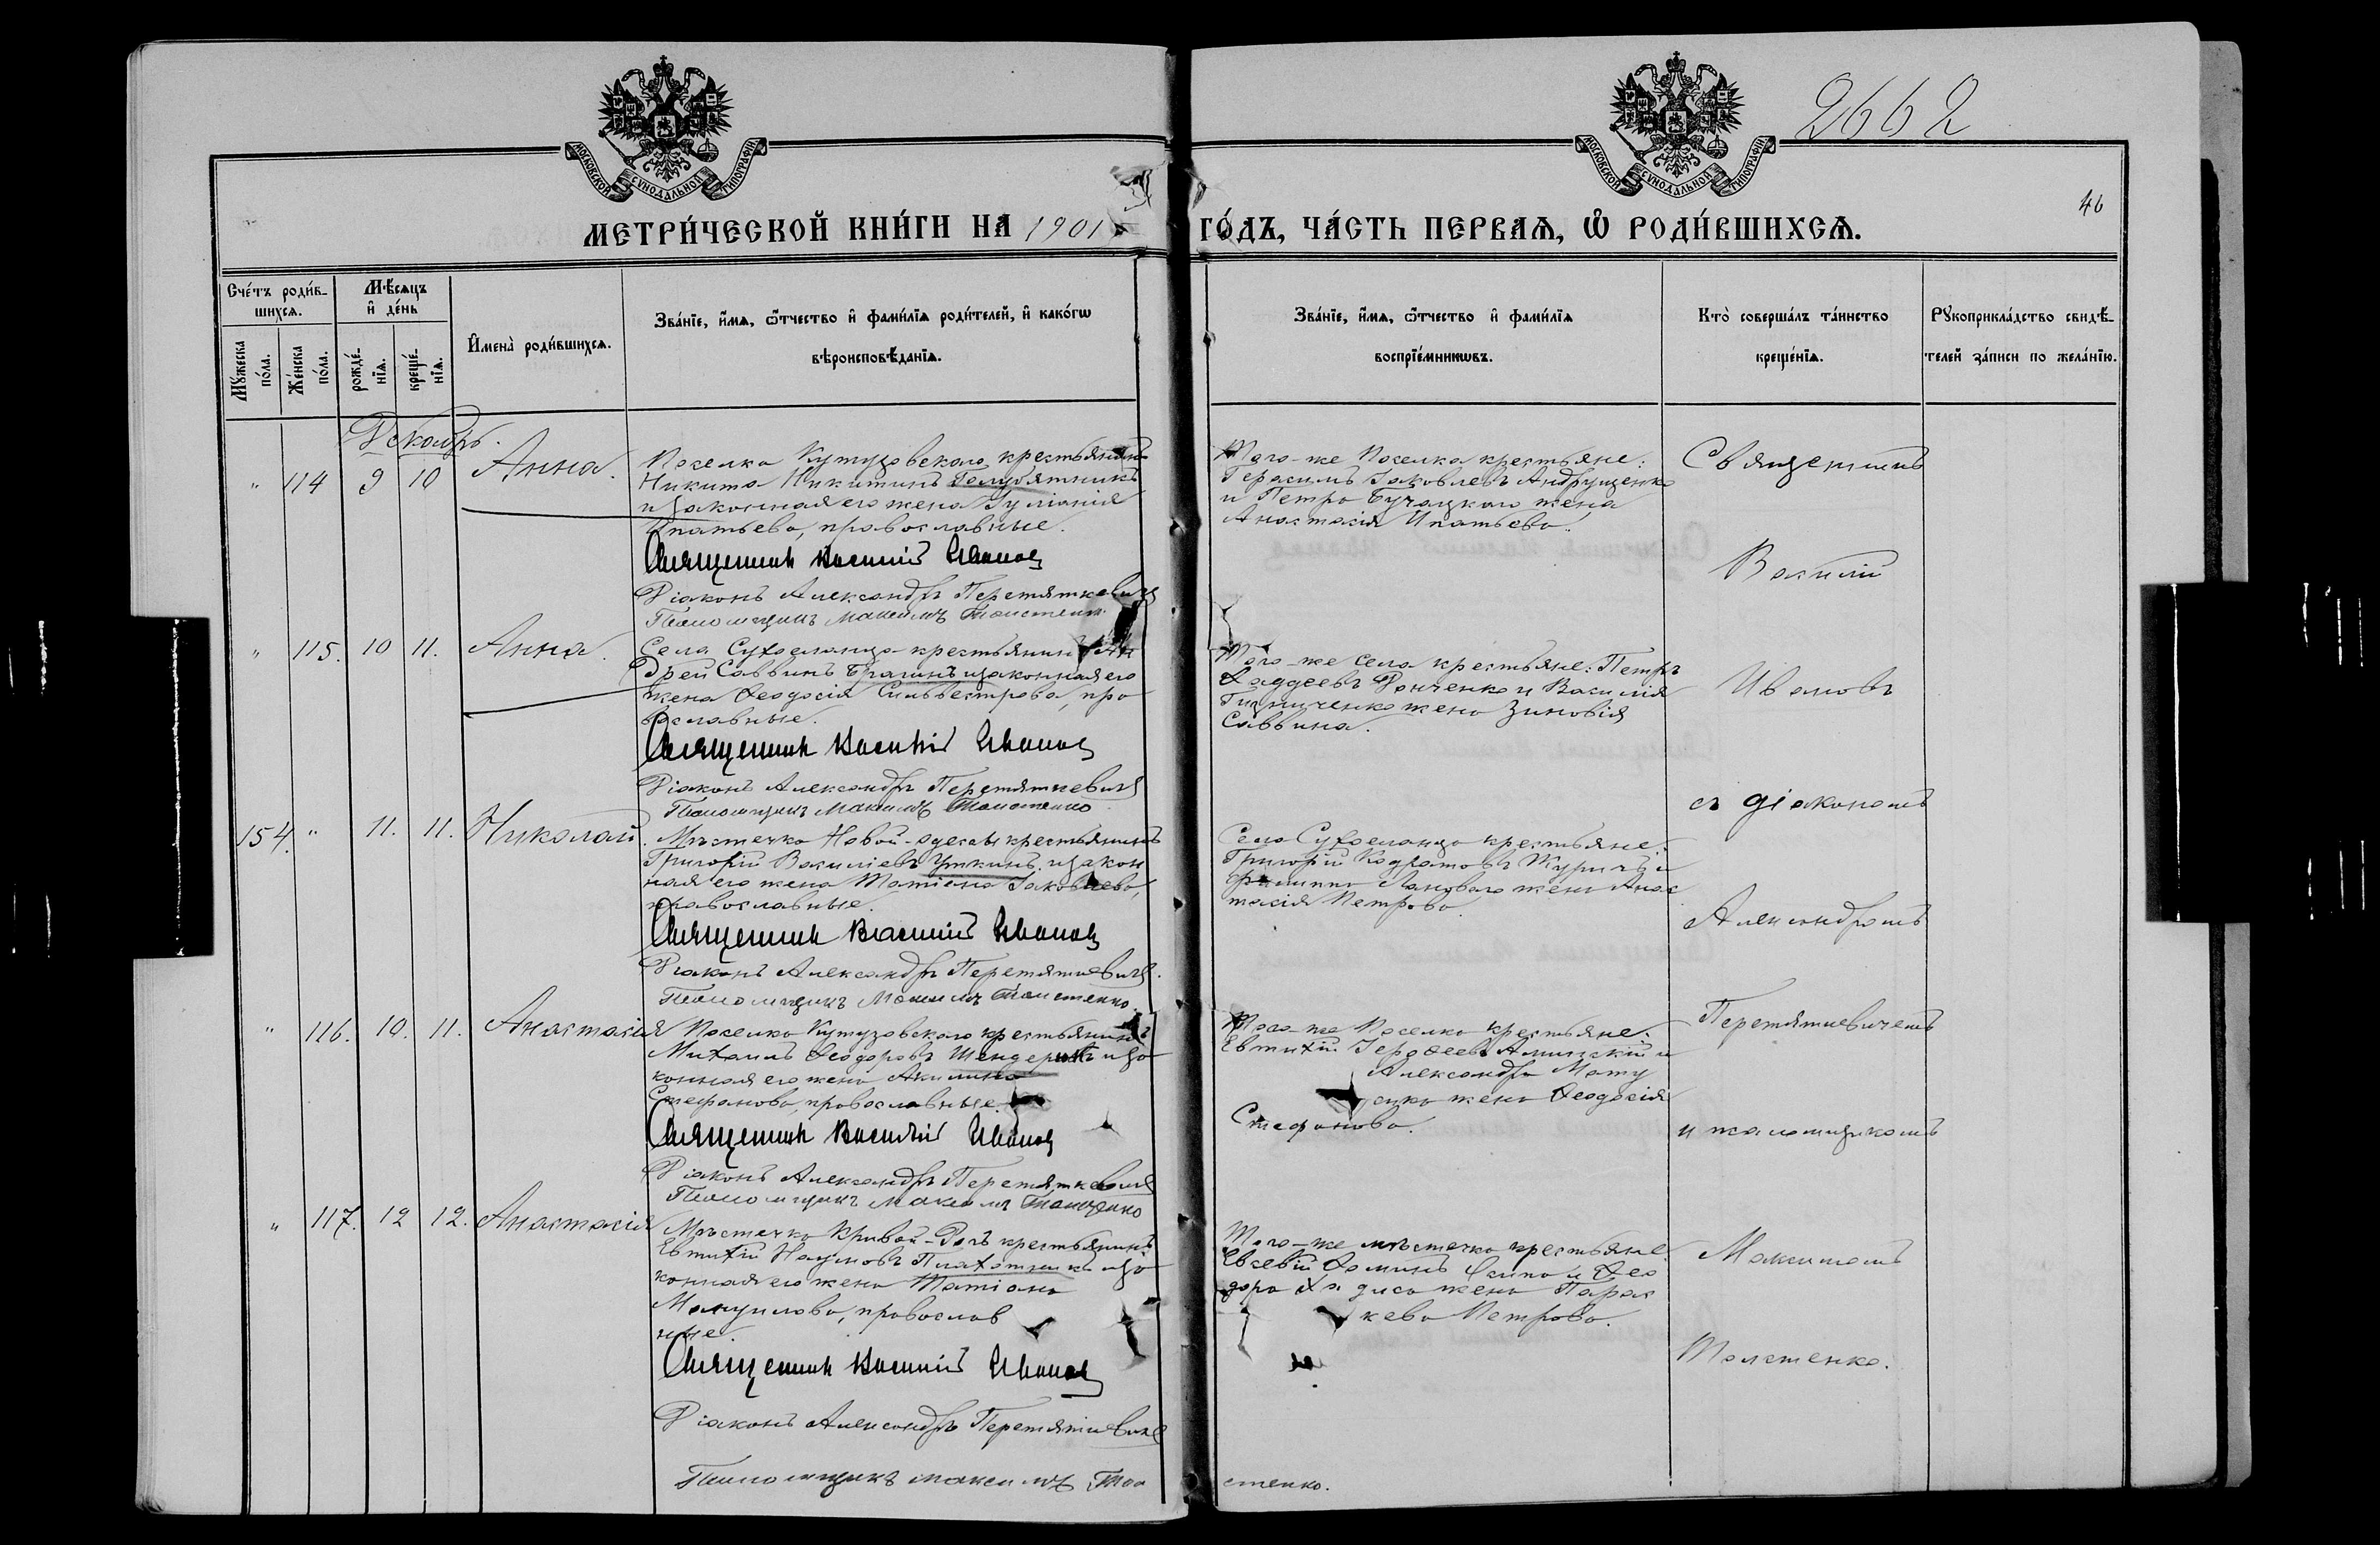 2662
46
МОСКОВСКОЙ СѴНОДАЛЬНОЙ ТИПОГРАФІИ
МОСКОВСКОЙ СѴНОДАЛЬНОЙ ТИПОГРАФІИ
МЕТРИ́ЧЕСКОЙ КНИ́ГИ НА 1901
ГО́ДЪ, ЧА́СТЬ ПЕРВАѦ, Ѡ҆ РОДИ́ВШИХСѦ.
Сче́тъ роди́в-
шихсѧ.
Мꙋ́жеска
по́ла.
Же́нска
по́ла.
Мѣ́сѧцъ
и҆ де́нь
рожде́-
нїѧ.
креще́-
нїѧ.
И҆мена̀ роди́вшихсѧ.
Зва́нїе, и҆́мѧ, ѻ҆́тчество и҆ фами́лїѧ роди́телей, и҆ како́гѡ
вѣроисповѣ́данїѧ.
Зва́нїе, и҆́мѧ, ѻ҆́тчество и҆ фами́лїѧ
воспрїе́мникѡвъ.
Кто̀ соверша́лъ та́инство
креще́нїѧ.
Рꙋкоприкла́дство свидѣ́-
телей за́писи по жела́нїю.
Декабрь.
" 114 9 10 Анна.
Поселка Кутузовскаго крестьянинъ
Никита Никитинъ Голубятникъ
и законная его жена Іуліанія
Ипатьева, православные.
Священник Василий Иванов
Діаконъ Александръ Перетяткевичъ
Псаломщикъ Максимъ Толстенко
Того-же поселка крестьяне:
Герасимъ Іаковлевъ Андрущенко
и Петра Бучацкаго жена
Анастасія Ипатьева.
" 115. 10 11. Анна.
Села Сухоеланца крестьянинъ Ан
дрей Саввинъ Брагинъ и законная его
жена Ѳеодосія Сильвестрова, пра
вославные.
Священник Василий Иванов
Діаконъ Александръ Перетяткевичъ
Псаломщикъ Максимъ Толстенко
Того-же села крестьяне: Петръ
Ѳаддеевъ и Василія
жена Зиновія
Саввина.
154. " 11. 11. Николай.
Мѣстечка Новой-Одессы крестьянинъ
Григорій Василіевъ Уткинъ и закон
ная его жена Татіана Іаковлева,
православные.
Священник Василий Иванов
Діаконъ Александръ Перетяткевичъ.
Псаломщикъ Максимъ Толстенко.
Села Сухоеланца крестьяне:
Григорій Кодратовъ и
Филиппа Лановаго жена Анас
тасія Петрова.
" 116. 10. 11. Анастасія
Поселка Кутузовскаго крестьянинъ
Михаилъ Ѳеодоровъ Шендерикъ и за
конная его жена Акилина
Стефанова, православные.
Священник Василий Иванов
Діаконъ Александръ Перетяткевичъ
Псаломщикъ Максимъ Толстенко
Того-же поселка крестьяне:
Евтихій и
Александра Мату
жена Ѳеодосія
Стефанова.
" 117. 12 12. Анастасія
Мѣстечка Кривой-Рогъ крестьянинъ
Евтихій Наумовъ Плахотникъ и за
конная его жена Татіана
Мануилова, православ
ные.
Священник Василий Иванов
Діаконъ Александръ Перетяткевичъ
Псаломщикъ Максимъ Тол
стенко.
Того-же мѣстечка крестьяне
Евсевій Ѳоминъ и Ѳео
дора жена Парас
кева Петрова.
Священникъ
Василій
Ивановъ
съ діакономъ
Александромъ
Перетяткевичемъ
и псаломщикомъ
Максимомъ
Толстенко.